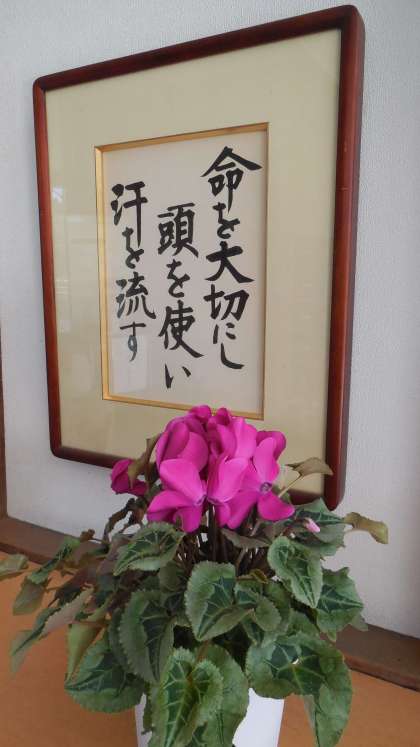 命を大切にし
頭を使い
汗を流す